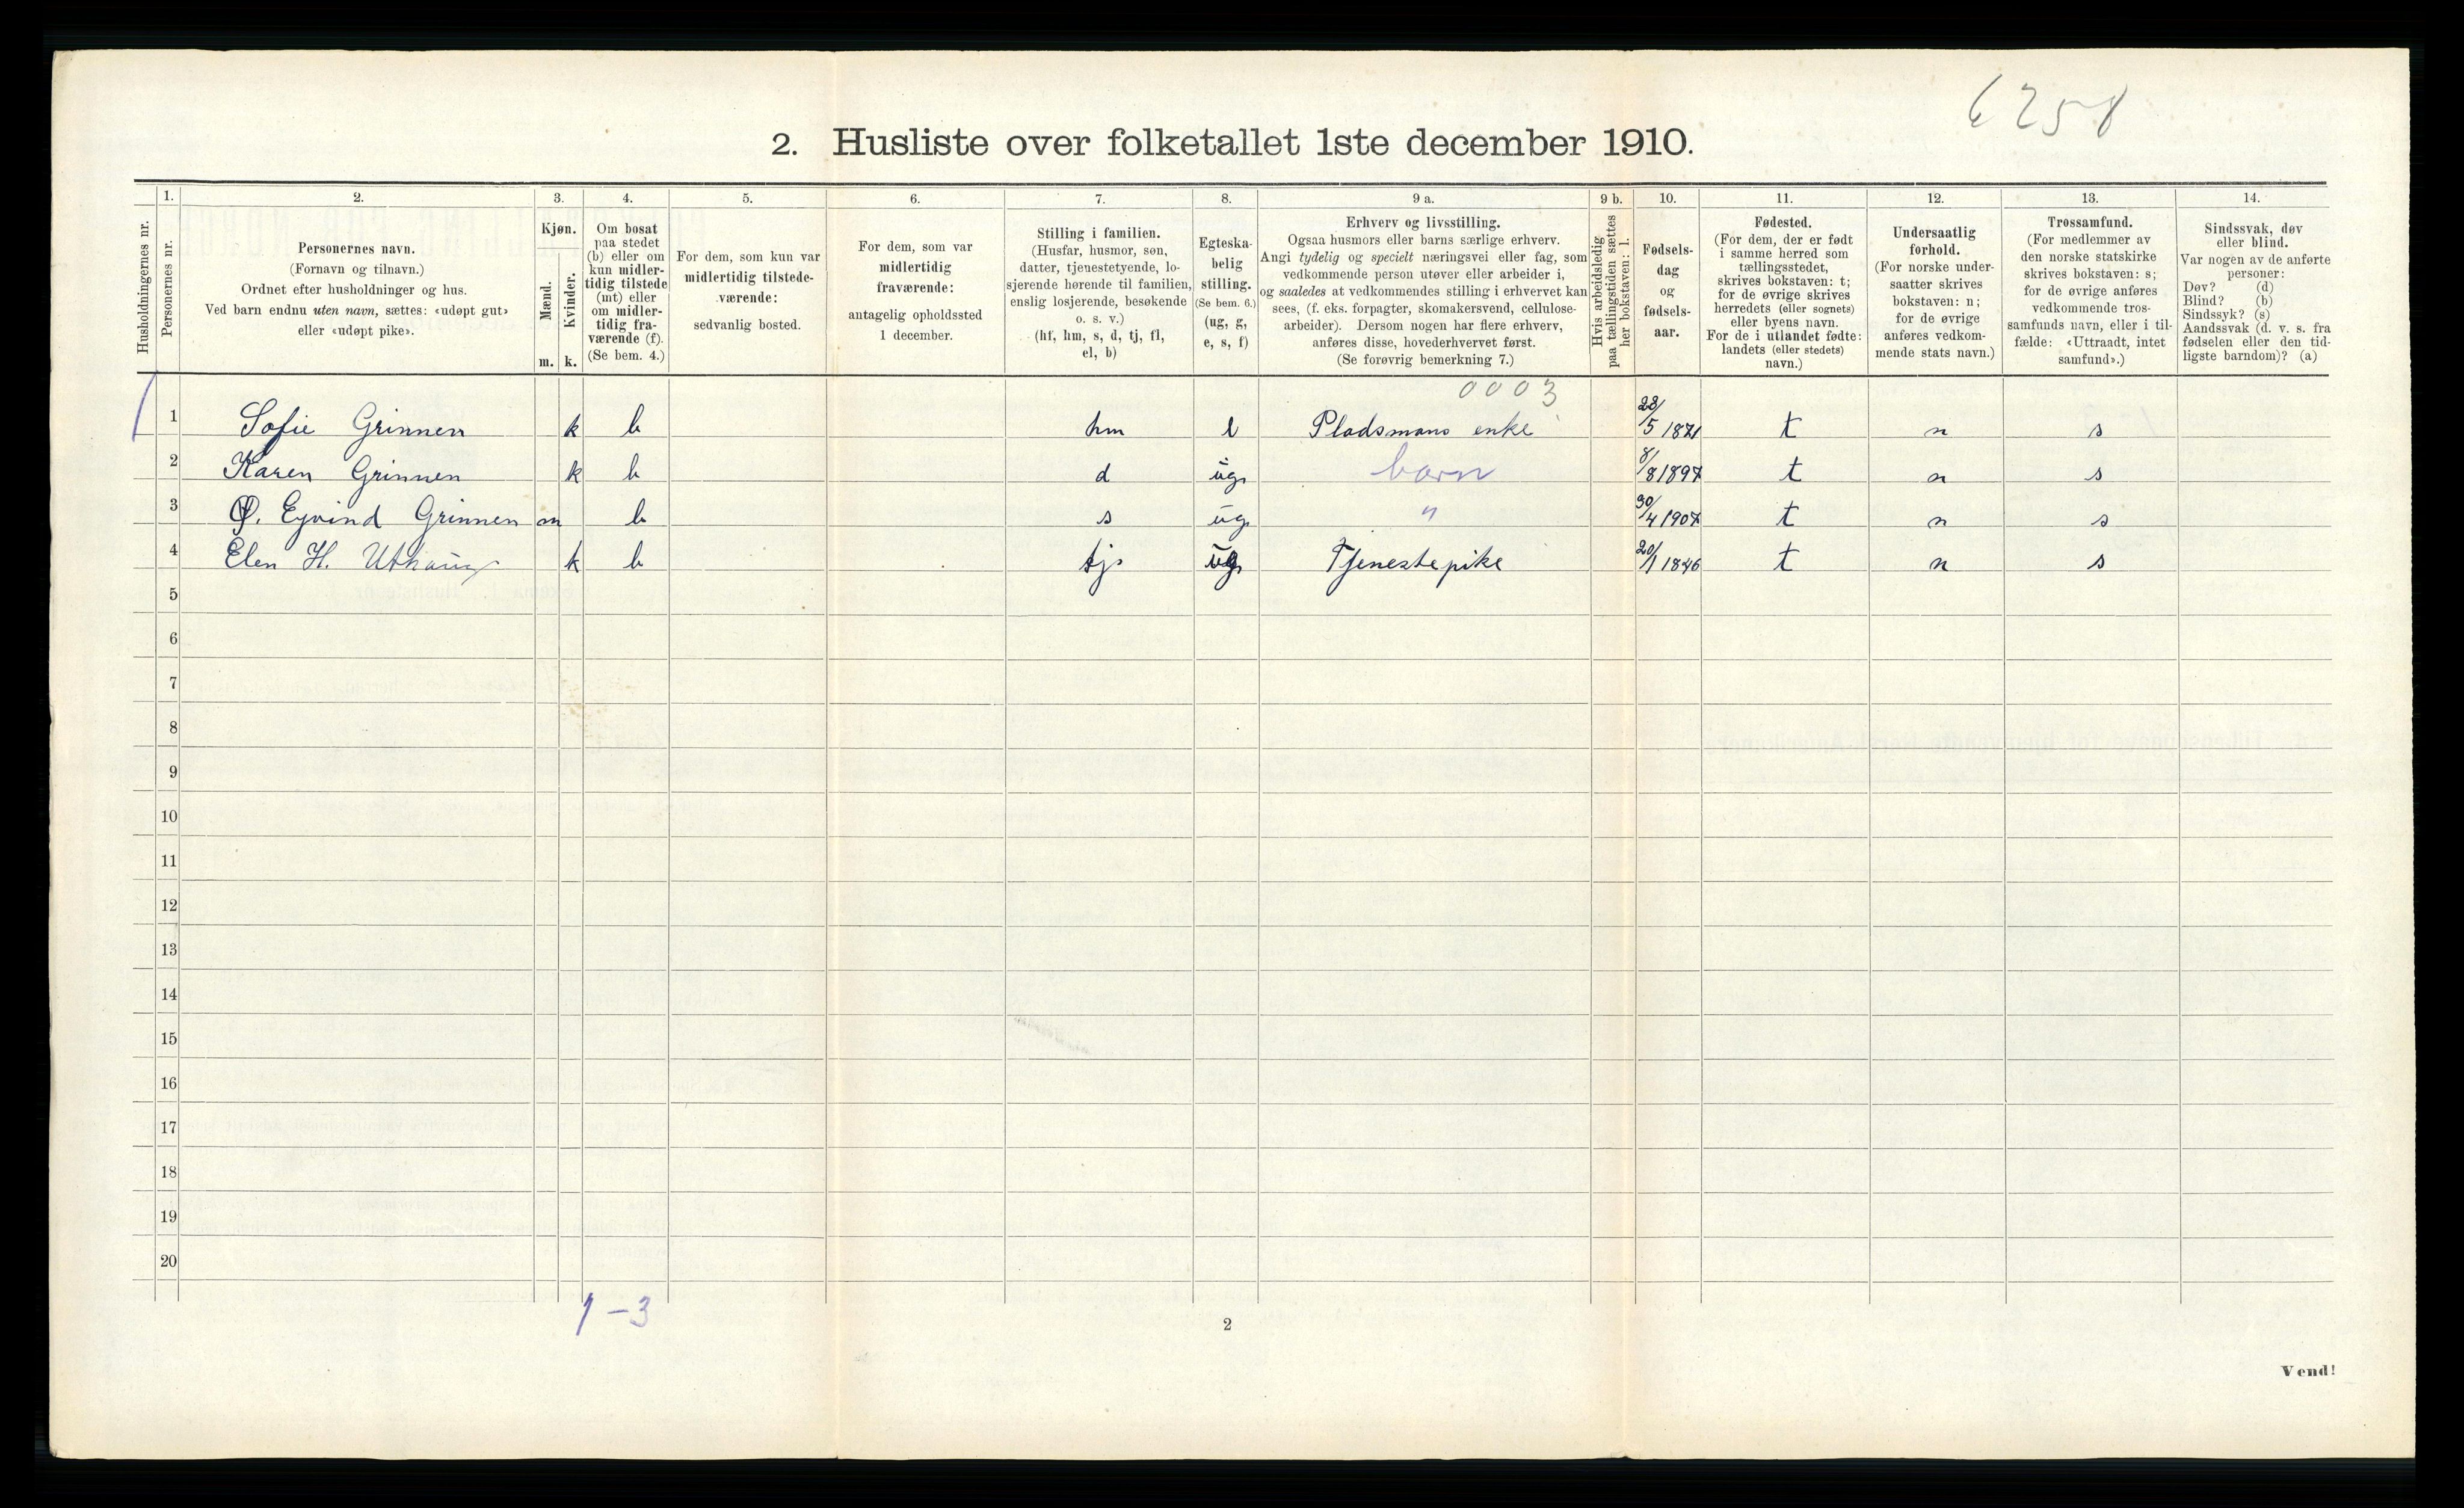 6258
2. Husliste over folketallet 1ste december 1910.
1. 2. 3. 4. 5. 6. 7. 8. 9 a. 9 b. 10. 11. 12. 13. 14.
Husholdningernes nr.
Personernes nr.
Personernes navn.
(Fornavn og tilnavn.)
Ordnet efter husholdninger og hus.
Ved barn endnu uten navn, sættes: «udøpt gut»
eller «udøpt pike».
Kjøn.
Mænd.
Kvinder.
m. k.
Om bosat
paa stedet
(b) eller om
kun midler-
tidig tilstede
(mt) eller
om midler-
tidig fra-
værende (f).
(Se bem. 4.)
For dem, som kun var
midlertidig tilstede-
værende:
sedvanlig bosted.
For dem, som var
midlertidig
fraværende:
antagelig opholdssted
1 december.
Stilling i familien.
(Husfar, husmor, søn,
datter, tjenestetyende, lo-
sjerende hørende til familien,
enslig losjerende, besøkende
o. s. v.)
(hf, hm, s, d, tj, fl,
el, b)
Egteska-
belig
stilling.
(Se bem. 6.)
(ug, g,
e, s, f)
Erhverv og livsstilling.
Ogsaa husmors eller barns særlige erhverv.
Angi tydelig og specielt næringsvei eller fag, som
vedkommende person utøver eller arbeider i,
og saaledes at vedkommendes stilling i erhvervet kan
sees, (f. eks. forpagter, skomakersvend, cellulose-
arbeider). Dersom nogen har flere erhverv,
anføres disse, hovederhvervet først.
(Se forøvrig bemerkning 7.)
Hvis arbeidsledig
paa tællingstiden sættes
her bokstaven: l.
Fødsels-
dag
og
fødsels-
aar.
Fødested.
(For dem, der er født
i samme herred som
tællingsstedet,
skrives bokstaven: t;
for de øvrige skrives
herredets (eller sognets)
eller byens navn.
For de i utlandet fødte:
landets (eller stedets)
navn.)
Undersaatlig
forhold.
(For norske under-
saatter skrives
bokstaven: n;
for de øvrige
anføres vedkom-
mende stats navn.)
Trossamfund.
(For medlemmer av
den norske statskirke
skrives bokstaven: s;
for de øvrige anføres
vedkommende tros-
samfunds navn, eller i til-
fælde: «Uttraadt, intet
samfund».)
Sindssvak, døv
eller blind.
Var nogen av de anførte
personer:
Døv? (d)
Blind? (b)
Sindssyk? (s)
Aandssvak (d. v. s. fra
fødselen eller den tid-
ligste barndom)? (a)
0003
1 1 Sofie Grinnen k b hm e Pladsmans enke 28/5 1871 t n s
2 Karen Grinnen k b d ug. barn 8/8 1897 t n s
3 Eyvind Grinnen m b s ug. " 30/4 1907 t n s
4 Elen H. Uthaug k b tj. ug. Tjenestepike 20/1 1846 t n s
5
6
7
8
9
10
11
12
13
14
15
16
17
18
19
20
1 – 3
2
Vend!